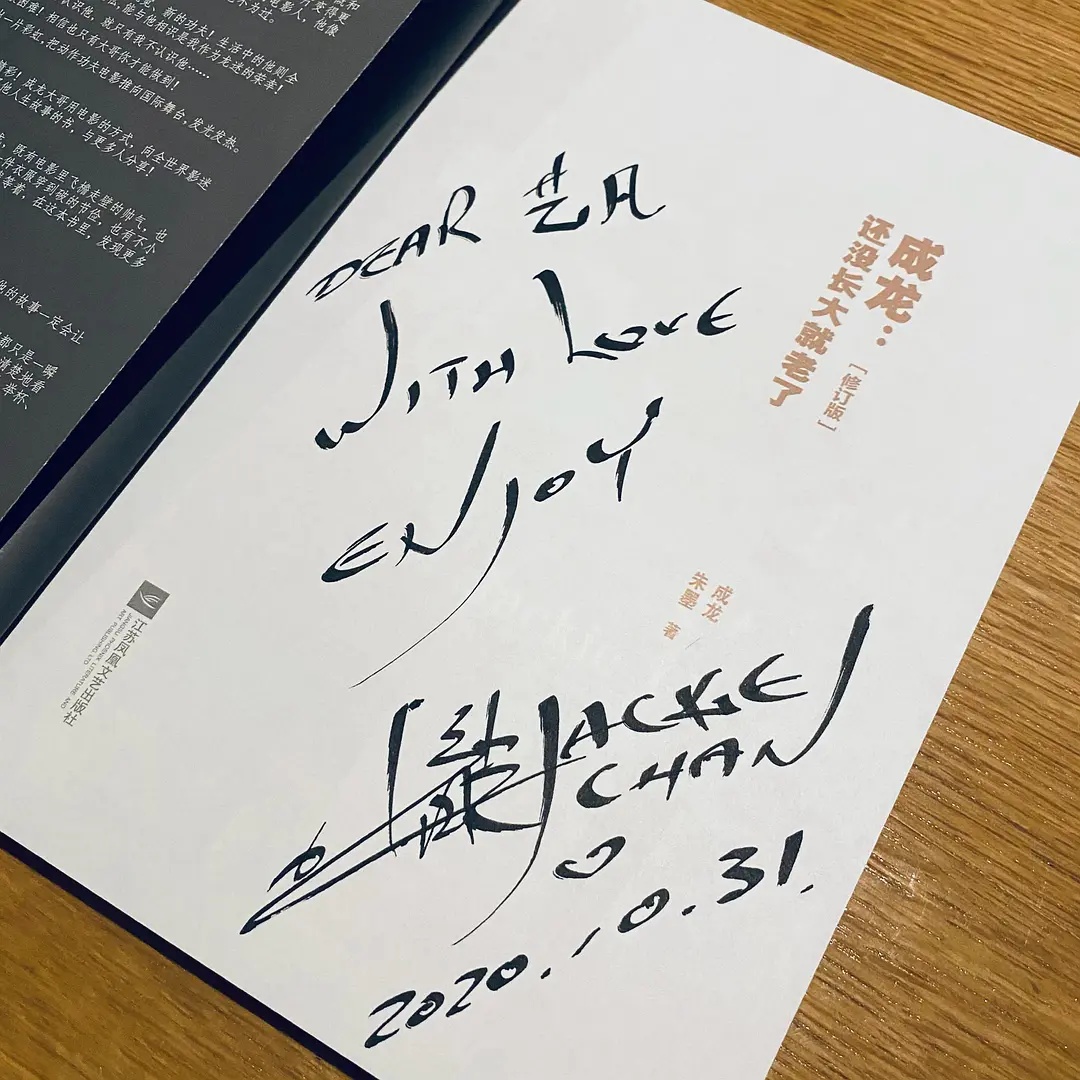 变得更
电影人，他像
不为过。
新的功夫！生活中的他则全
能与他相识是我作为龙迷的荣幸！
认识他，就只有我不认识他……
困难！相信也只有大哥你才能做到！
一片彩虹，把动作功夫电影推向国际舞台，发光发热。
精彩！成龙大哥用电影的方式，向全世界影迷
他人生故事的书，与更多人分享！
既有电影里飞檐走壁的帅气，也
件衣服穿到破的节俭，也有不小
等着，在这本书里，发现更多
他的故事一定会让
都只是一瞬
清楚地看
举杯、
成龙：
还没长大就老了
［修订版］
DEAR 艺凡
WITH LOVE
ENJOY
成龙
朱墨 著
JACKIE
CHAN
2020.10.31.
江苏凤凰文艺出版社
JIANGSU PHOENIX LITERATURE AND
ART PUBLISHING LTD